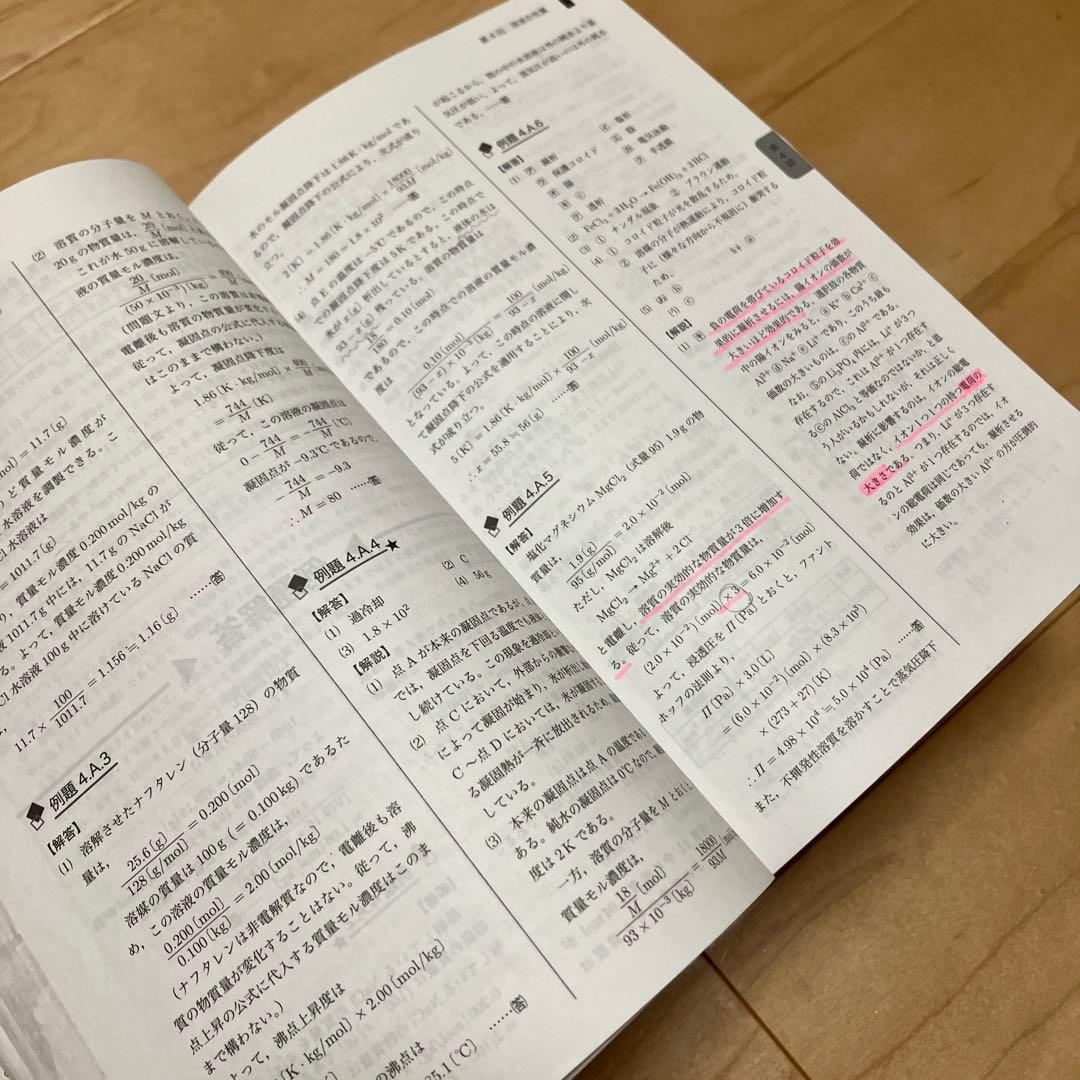 (2) 溶質の分子量を M とおく
20gの物質量は, 20/M (mol)
これが水50gに溶解してい
液の質量モル濃度は,
20/M (mol) / (50 × 10⁻³) (kg)
(問題文より, この溶質は
電離後も溶質の物質量が変化
従って, 凝固点の公式に代入す
はこのままで構わない。)
よって, 凝固点降下度は
1.86 (K・kg/mol) ×
= 744/M (K)
従って, この溶液の凝固点は
0 − 744/M = −744/M (℃)
凝固点が −9.3℃であるので,
744/M = −9.3
∴ M = 80 ……答
mol) = 11.7 (g)
ど質量モル濃度が
水溶液を調製できる。こ
Cl 水溶液は
= 1011.7 (g)
り, 質量モル濃度 0.200 mol/kg の
液1011.7g中には, 11.7gのNaClが
る。よって, 質量モル濃度 0.200 mol/kg
Cl 水溶液100g中に溶けているNaClの質
11.7 × 100/1011.7 = 1.156 = 1.16 (g) ……答
例題 4.A.3
【解答】
(1) 溶解させたナフタレン (分子量128) の物質
量は,
25.6 (g) / 128 (g/mol) = 0.200 (mol)
溶媒の質量は 100g (= 0.100kg) であるた
め, この溶液の質量モル濃度は,
0.200 (mol) / 0.100 (kg) = 2.00 (mol/kg)
(ナフタレンは非電解質なので, 電離後も溶
質の物質量が変化することはない。従って, 沸
点上昇の公式に代入する質量モル濃度はこのま
まで構わない。)
よって, 沸点上昇度は
(K・kg/mol) × 2.00 (mol/kg)
の沸点は
25.1 (℃) ……答
例題 4.A.4 ★
【解答】
(1) 過冷却
(2) C
(3) 1.8 × 10²
(4) 56g
【解説】
(1) 点Aが本来の凝固点であるが, 点
では, 凝固点を下回る温度でも液体
し続けている。この現象を過冷却と
(2) 点Cにおいて, 外部からの衝撃な
によって凝固が始まり, 氷が析出し始
C〜点Dにおいては, 氷が凝固する
る凝固熱が一斉に放出されるため,
している。
(3) 本来の凝固点は点Aの温度であ
ある。純水の凝固点は0℃なので, 凝
度は2Kである。
一方, 溶質の分子量をMとおくと,
質量モル濃度は,
18/M (mol) / 93 × 10⁻³ (kg) = 18000/93M
水のモル凝固点降下は 1.86 K・kg/mol であ
るので, 凝固点降下の公式により, 次式が成り
立つ。
2 (K) = 1.86 (K・kg/mol) × 18000/93M (mol/kg)
∴ M = 180 = 1.8 × 10² ……答
(4) 点Eの温度は −5℃であるので, この時点
での凝固点降下度は5Kである。この時点で
氷が x (g) 析出しているとすると, 液体の水は
93 − x (g) 残っている。溶質の物質量は
18/180 = 0.10 (mol)
であるので, この時点での溶液の質量モル濃
度は
0.10 (mol) / (93 − x) × 10⁻³ (kg) = 100/93 − x
となっている。よって, この時点の溶液に関し
て凝固点降下の公式を適用することにより, 次
式が成り立つ。
5 (K) = 1.86 (K・kg/mol) × 100/93 − x
∴ x = 55.8 = 56 (g) ……答
例題 4.A.5
【解答】
塩化マグネシウム MgCl₂ (式量95) 1.9gの物
質量は, 1.9 (g) / 95 (g/mol) = 2.0 × 10⁻² (mol)
ただし, MgCl₂ は溶解後
MgCl₂ → Mg²⁺ + 2Cl⁻
と電離し, 溶質の実効的な物質量が3倍に増加す
る。従って, 溶質の実効的な物質量は,
(2.0 × 10⁻²) (mol) × 3 = 6.0 × 10⁻² (mol)
よって, 浸透圧を Π (Pa) とおくと, ファント
ホッフの法則より,
Π (Pa) × 3.0 (L)
= (6.0 × 10⁻²) (mol) × (8.3 × 10³)
× (273 + 27) (K)
∴ Π = 4.98 × 10⁴ = 5.0 × 10⁴ (Pa) ……答
また, 不揮発性溶質を溶かすことで蒸気圧降下
第4回 溶液の性質
が起こるから, 管の中の水溶液は外の純水より蒸
気圧が低い。よって, 蒸気圧が高いのは外の純水
である。……答
例題 4.A.6
【解答】
(1) 凝析
塩析
保護コロイド
陽
陰
電気泳動
透析
半透膜
(2) FeCl₃ + 3H₂O → Fe(OH)₃ + 3HCl
(3) ① チンダル現象 ② ブラウン運動
(4) ① コロイド粒子が光を散乱するため。
② 溶媒の分子が熱運動により, コロイド粒
子に (様々な方向から不規則に) 衝突する
(5)
【解説】
(1) 負の電荷を帯びているコロイド粒子を効
果的に凝析させるには, 陽イオンの価数が
大きいほど効果的である。選択肢の各物質
中の陽イオンをみると, ⓐ K⁺ ⓑ Ca²⁺ ⓒ
Al³⁺ ⓓ Na⁺ ⓔ Li⁺ であり, このうち最も
価数の大きいものは, ⓒの Al³⁺ である。
なお, ⓔの Li₃PO₄ 内には, Li⁺ が3つ
存在するので, これは Al³⁺ が1つ存在す
るⓒの AlCl₃ と等価なのではないか, と思
う人がいるかもしれないが, それは正しく
ない。凝析に影響するのは, イオンの総電
荷ではなく, イオン1つ1つの持つ電荷の
大きさである。つまり, Li⁺ が3つ存在す
るのと Al³⁺ が1つ存在するのでは, イオ
ンの総電荷は同じであっても, 凝析させる
効果は, 価数の大きい Al³⁺ の方が圧倒的
に大きい。
第4回